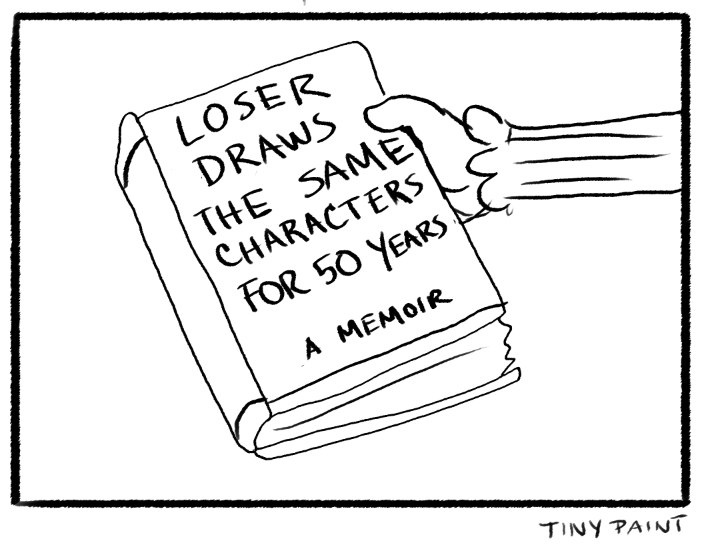 LOSER
DRAWS
THE SAME
CHARACTERS
FOR 50 YEARS
A MEMOIR
TINY PAINT